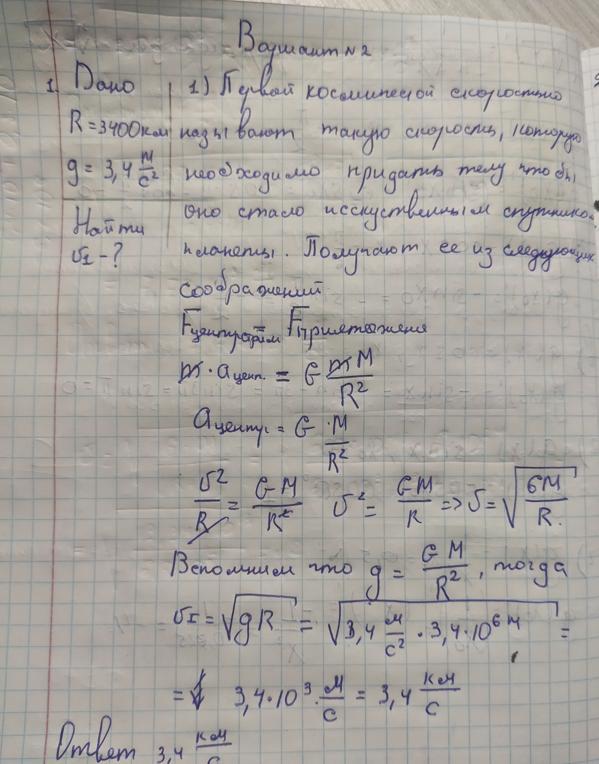 Вариант №2
1. Дано 1) Первой космической скоростью
R = 3400 км называют такую скорость, которую
g = 3,4 м/с² необходимо придать телу чтобы
Найти оно стало исскуственным спутником
υI - ? планеты. Получают ее из следующих
соображений
Fцентростреим = Fпритяжения
m · aцен. = G mM/R²
aцентр = G · M/R²
υ²/R = GM/R² υ² = GM/R => υ = √(GM/R).
Вспомним что g = GM/R², тогда
υI = √(gR) = √(3,4 м/с² · 3,4·10⁶ м) =
= 3,4·10³ · м/с = 3,4 км/с
Ответ 3,4 км/с